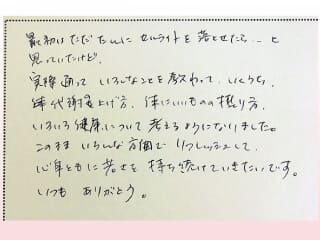 最初はただたんにセルライトを落とせたら…と
思っていたけど、
実際通って いろんなことを教わって、いくうち、
代謝の上げ方、体にいいものの摂り方、
いろいろ健康について考えるようになりました。
このまま いろんな方面で リフレッシュして、
心身ともに若さを持ち続けていきたいです。
いつも ありがとう。